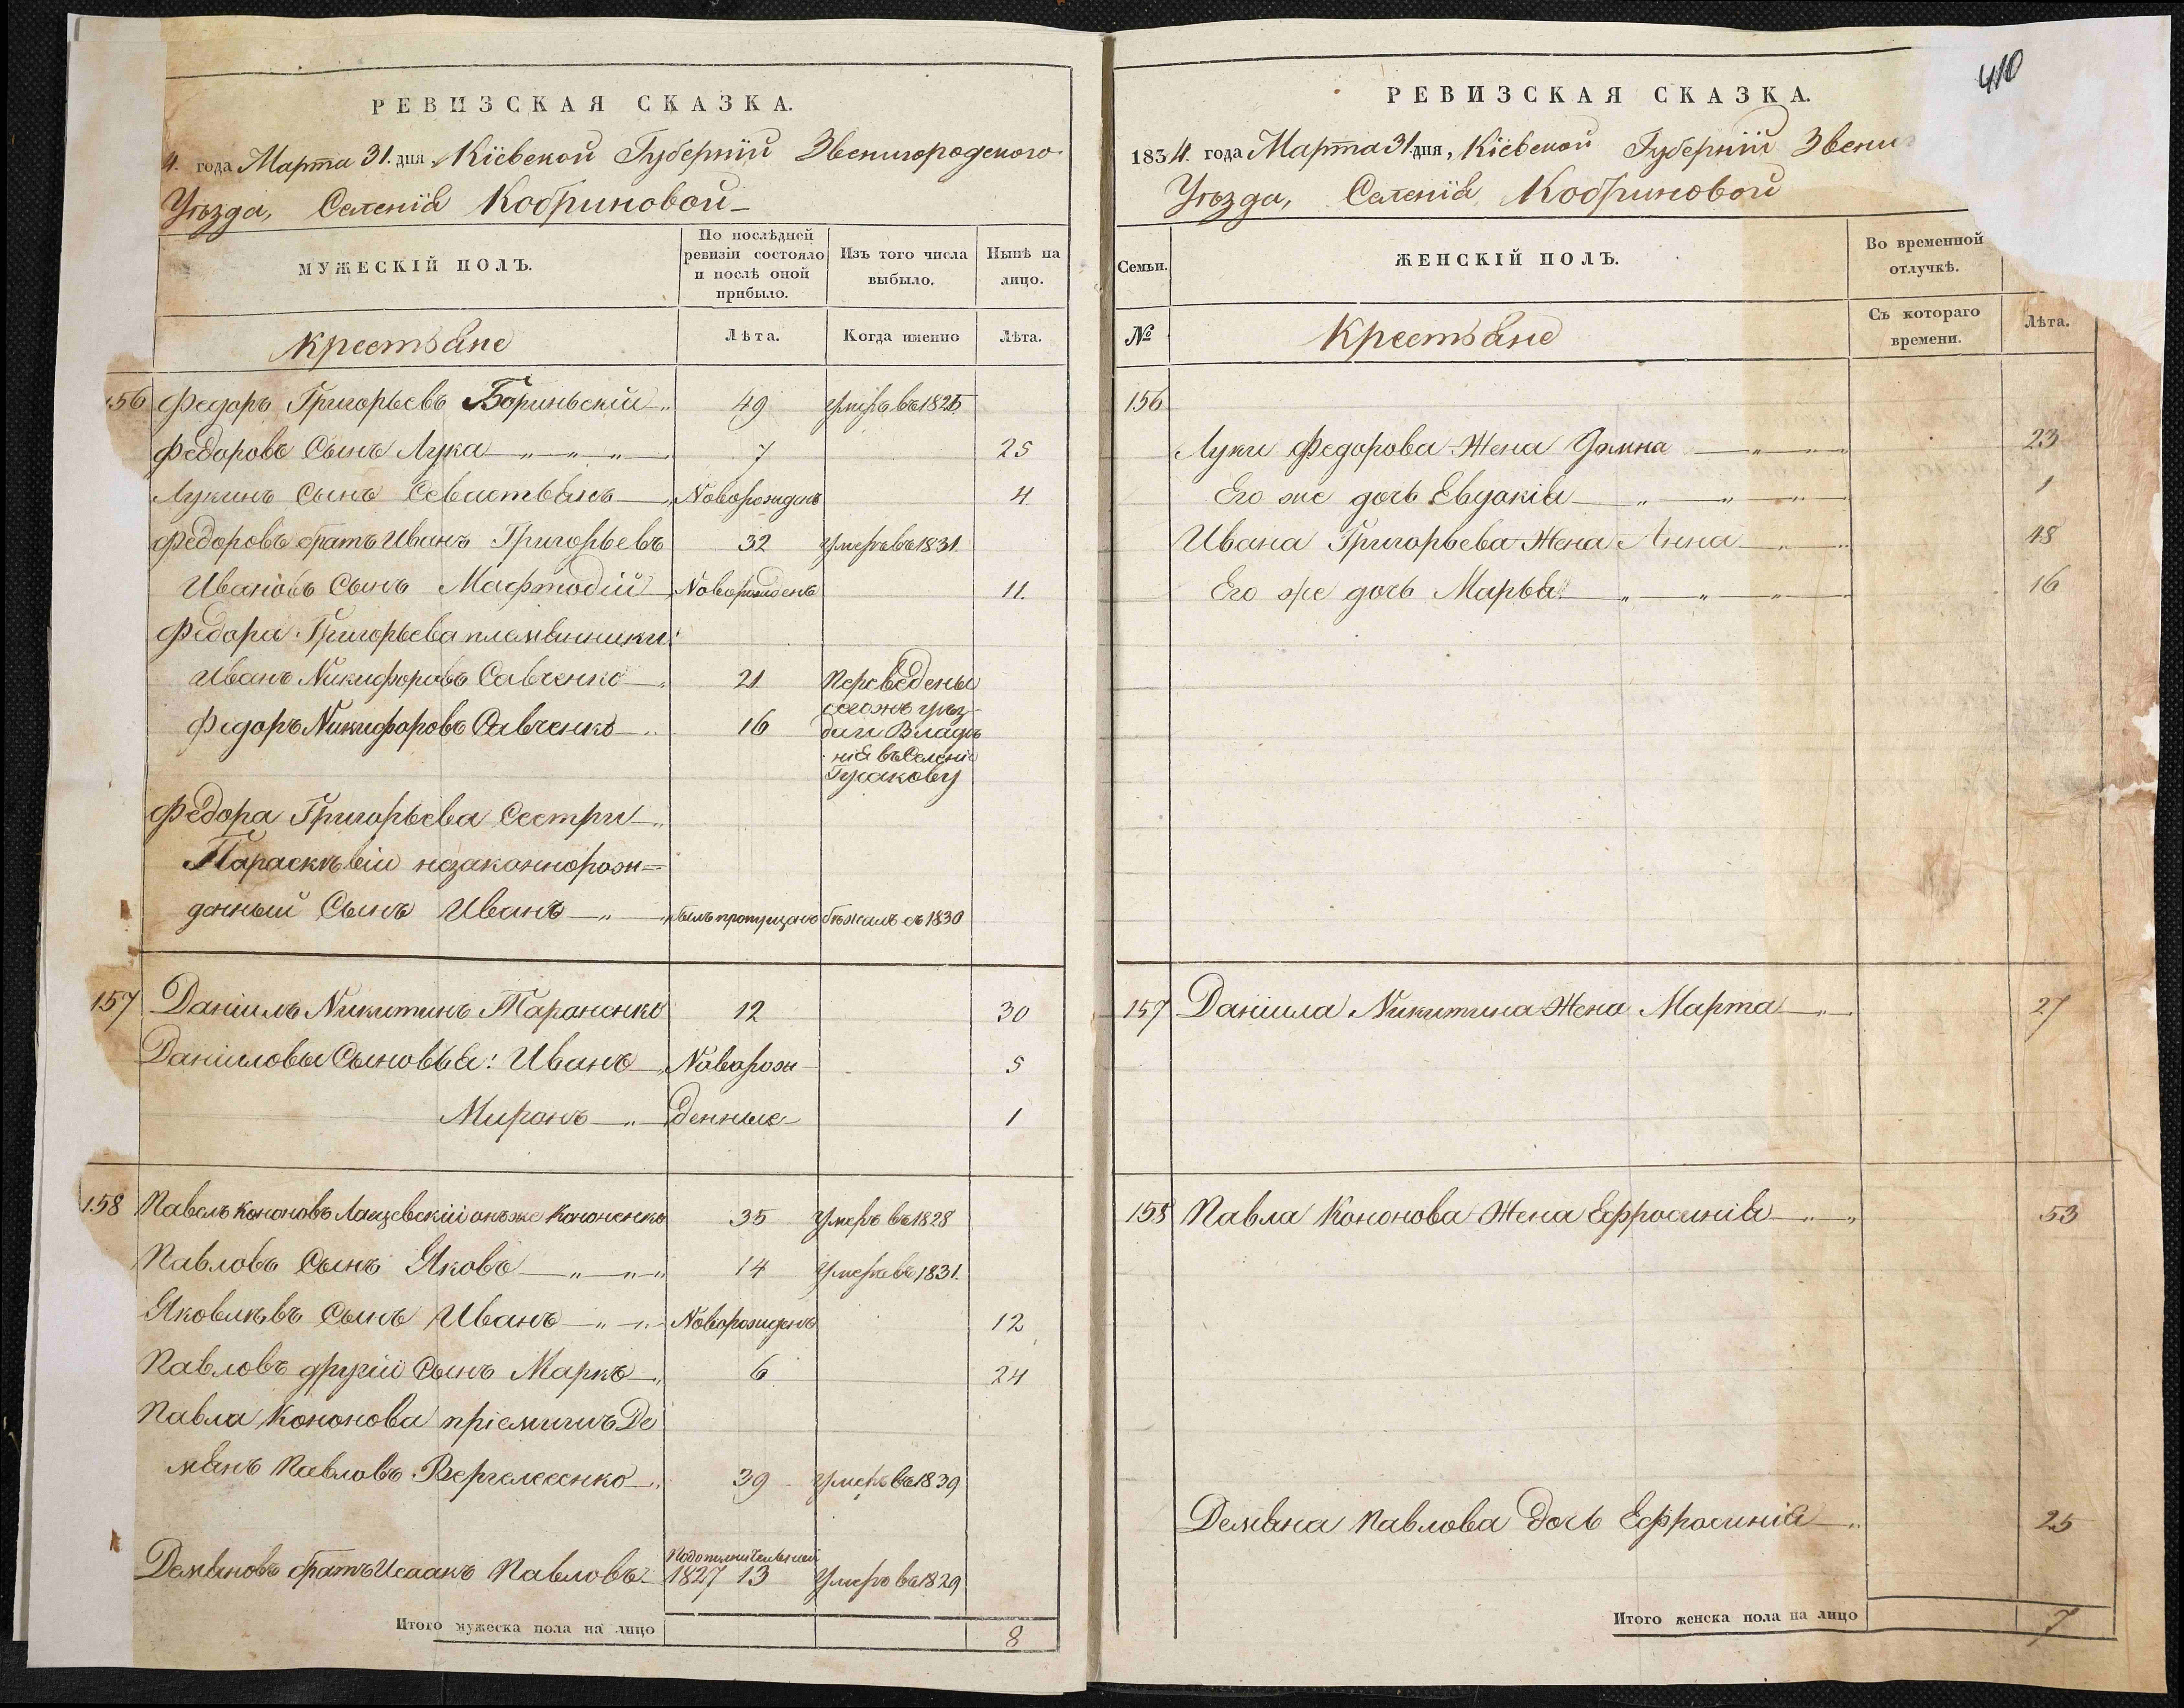 РЕВИЗСКАЯ СКАЗКА.
4. года Марта 31. дня Кіевской Губерніи Звенигородского
Уѣзда, Селенія Кобриновой
МУЖЕСКІЙ ПОЛЪ.
По послѣдней ревизіи состояло и послѣ оной прибыло.
Изъ того числа выбыло.
Нынѣ на лицо.
Крестьяне
Лѣта.
Когда именно
Лѣта.
156 Федоръ Григорьевъ 49 умеръ въ 182
Федоровъ Сынъ Лука 7 25
Лукинъ Сынъ Севастьянъ Новорожденъ 4
Федоровъ братъ Иванъ Григорьевъ 32 умеръ въ 1831
Ивановъ Сынъ Мафтодій Новорожденъ 11.
Федора Григорьева племянники:
Иванъ Никифоровъ Савченко 21 Переведены
сегожъ уѣз-
Федоръ Никифоровъ Савченко 16 да и Владѣ
нія въ Селеніе
Гусакову
Федора Григорьева Сестри
Параскѣвіи незаконнорож=
денный Сынъ Иванъ былъ пропущенъ бѣжалъ съ 1830
157 Даніилъ Никитинъ Тараненко 12 30
Даніиловы Сыновья: Иванъ Новорож 5
Миронъ денные 1
158 Павелъ Кононовъ Лащевскій онъ же Кононенко 35 умеръ въ 1828
Павловъ Сынъ Яковъ 14 умеръ въ 1831.
Яковлѣвъ Сынъ Иванъ Новорожденъ 12
Павловъ другій Сынъ Марко 6 24
Павла Кононова пріемишъ Де
мянъ Павловъ 39 умеръ въ 1839
Демяновъ братъ Исаакъ Павловъ 1827 13 умеръ въ 1829
Итого мужеска пола на лицо 8
410
РЕВИЗСКАЯ СКАЗКА.
1834. года Марта 31. дня, Кіевской Губерніи Звени
Уѣзда, Селенія Кобриновой
Семьи.
ЖЕНСКІЙ ПОЛЪ.
Во временной отлучкѣ.
№
Крестьяне
Съ котораго времени.
Лѣта.
156
Луки Федорова Жена Домна 23
Его же дочь Евдокія 1
Ивана Григорьева Жена Анна 48
Его же дочь Марья 16
157 Даніила Никитина Жена Марта 27
158 Павла Кононова Жена Ефросинія 53
Демяна Павлова дочь Ефросинія 25
Итого женска пола на лицо 7